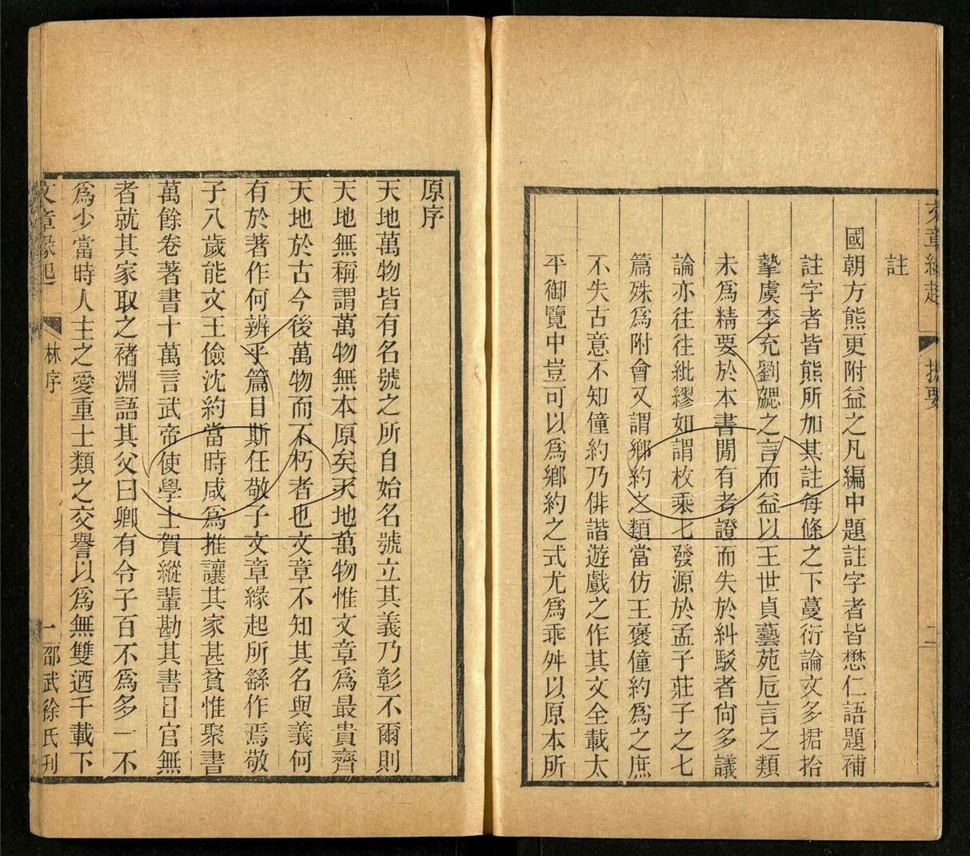 文章緣起
提要
二
註
國朝方熊更附益之凡編中題註字者皆懋仁語題補
註字者皆熊所加其註每條之下蔓衍論文多捃拾
摯虞李充劉勰之言而益以王世貞藝苑卮言之類
未爲精要於本書閒有考證而失於糾駁者尙多議
論亦往往紕繆如謂枚乘七發源於孟子莊子之七
篇殊爲附會又謂鄉約之類當仿王褒僮約爲之庶
不失古意不知僮約乃俳諧遊戲之作其文全載太
平御覽中豈可以爲鄉約之式尤爲乖舛以原本所
原序
天地萬物皆有名號之所自始名號立其義乃彰不爾則
天地無稱謂萬物無本原矣天地萬物惟文章爲最貴齊
天地於古今後萬物而不朽者也文章不知其名與義何
有於著作何辨乎篇目斯任敬子文章緣起所繇作焉敬
子八歲能文王儉沈約當時咸爲推讓其家甚貧惟聚書
萬餘卷著書十萬言武帝使學士賀縱輩勘其書目官無
者就其家取之褚淵語其父曰卿有令子百不爲多一不
爲少當時人主之愛重士類之交譽以爲無雙迺千載下
文章緣起
林序
一
邵武徐氏刋